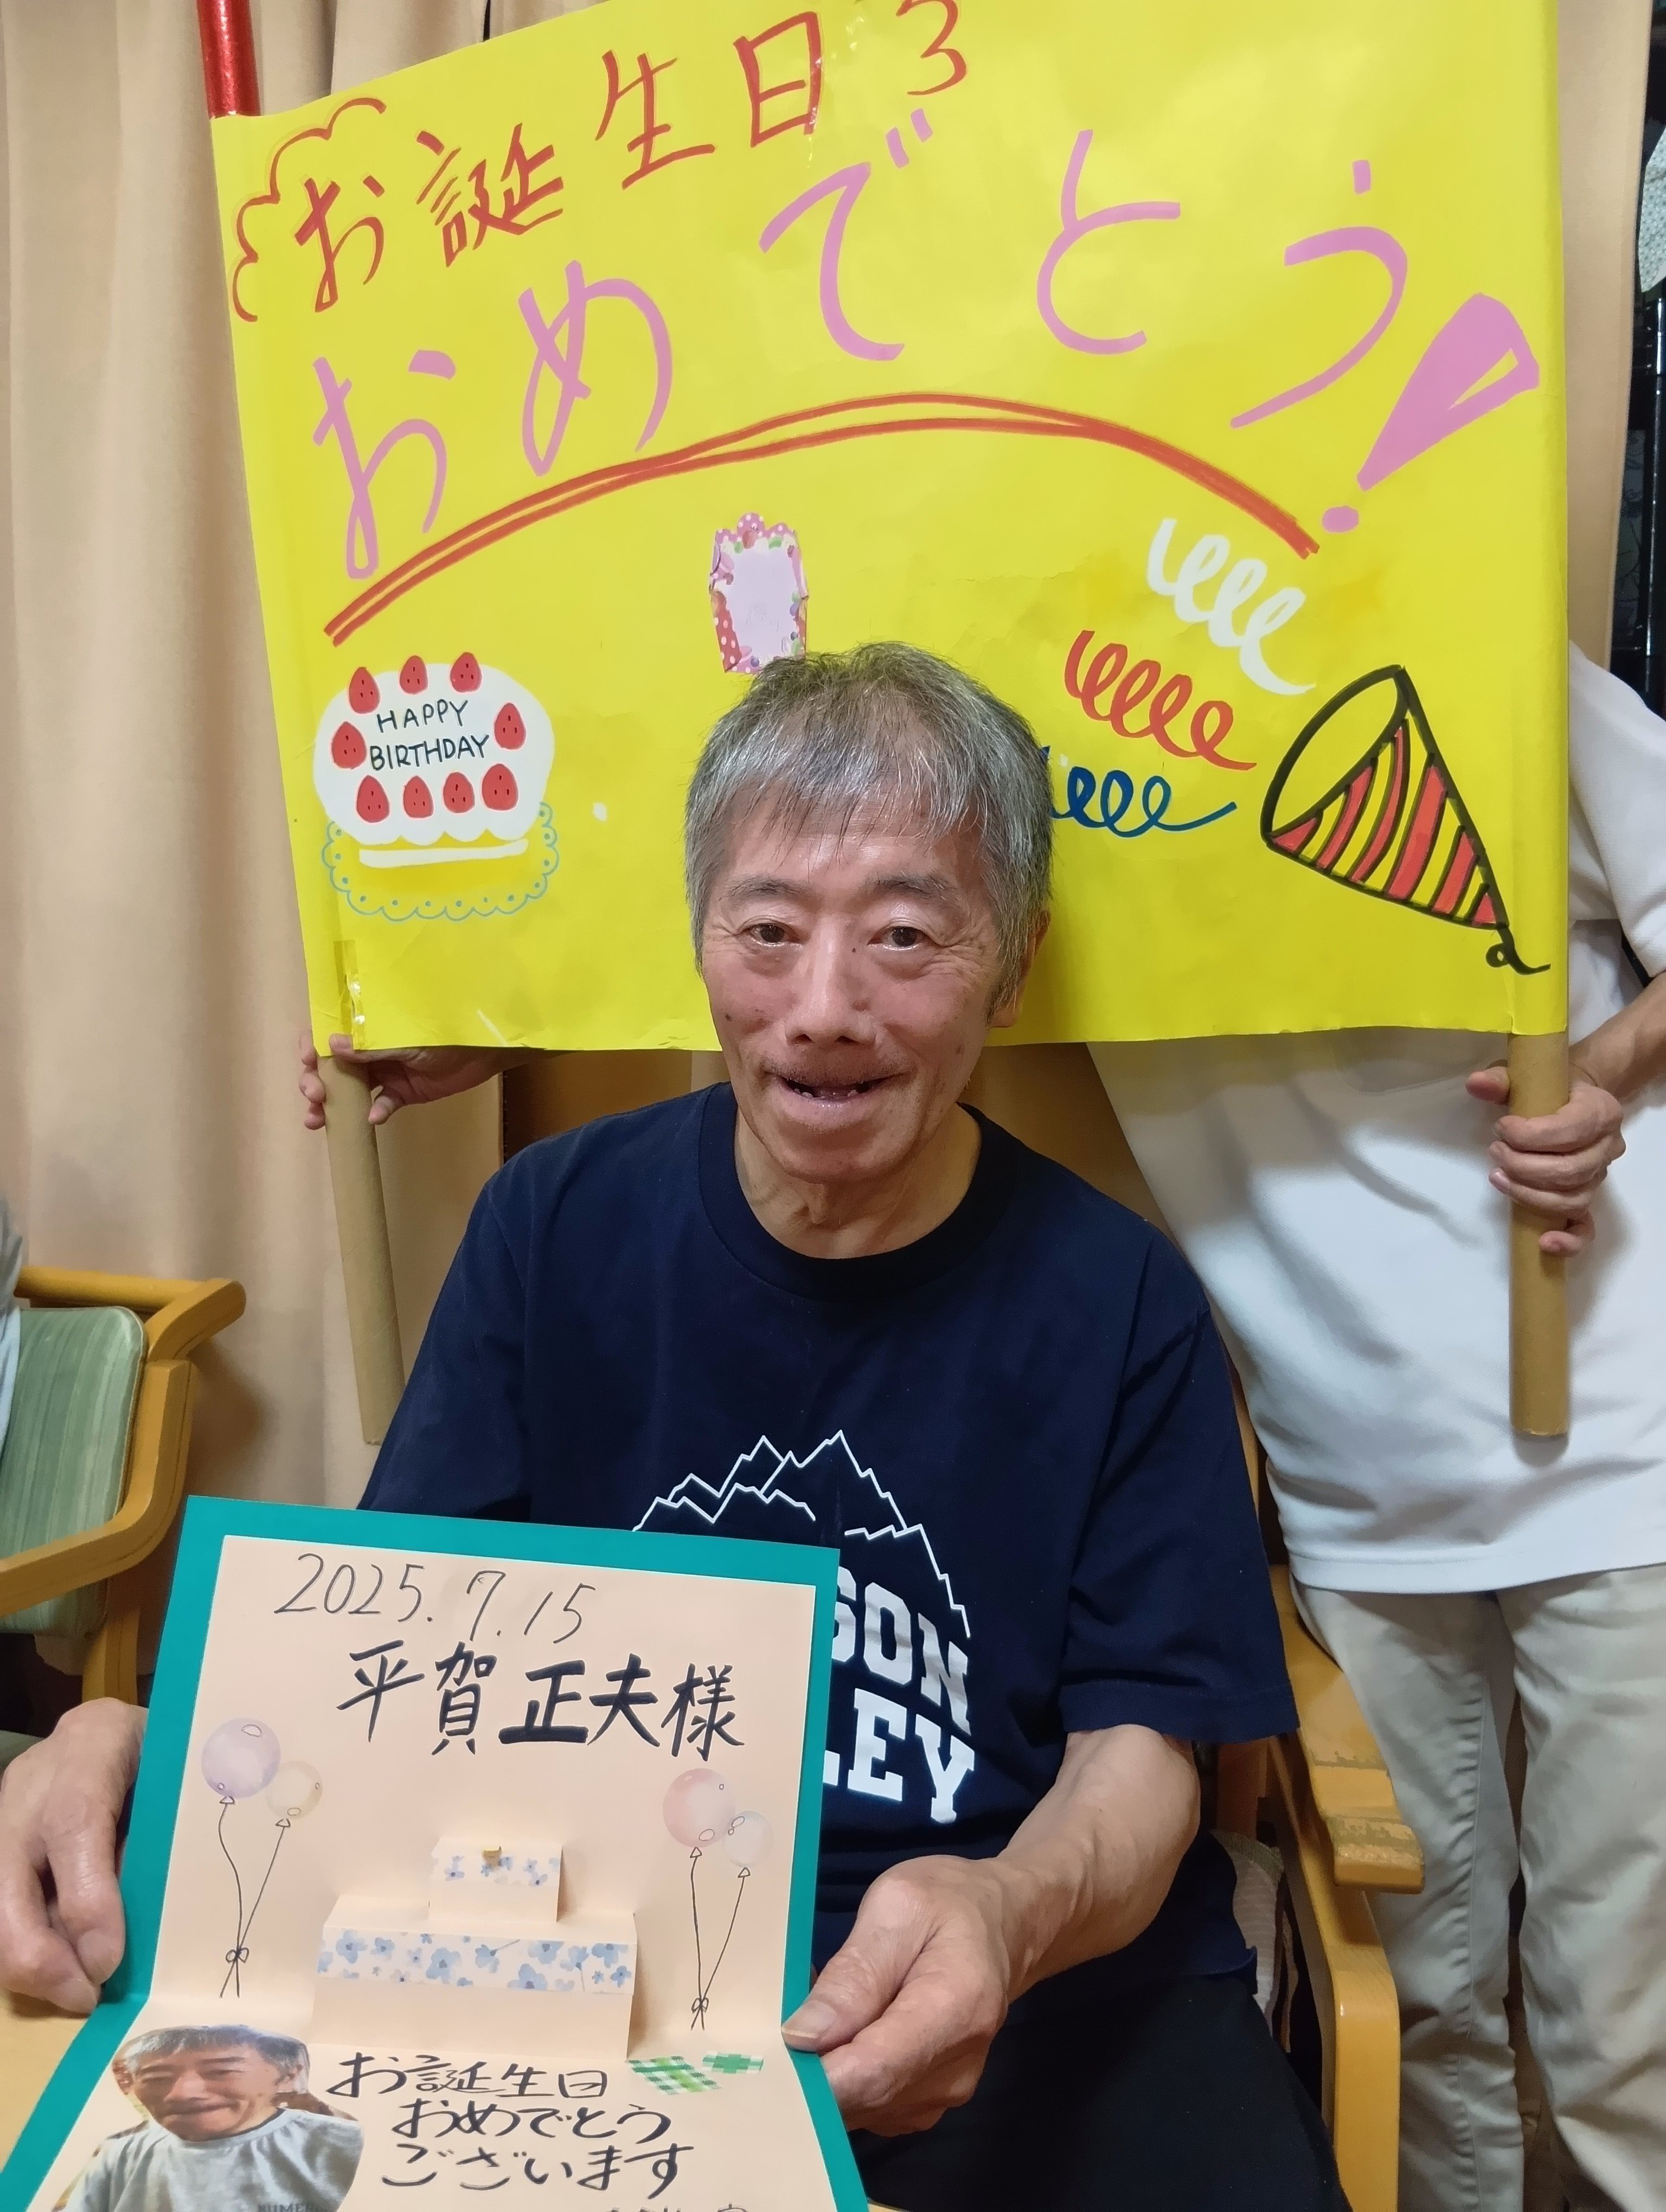 お誕生日
おめでとう!
HAPPY
BIRTHDAY
2025.7.15
平賀正夫様
お誕生日
おめでとう
ございます